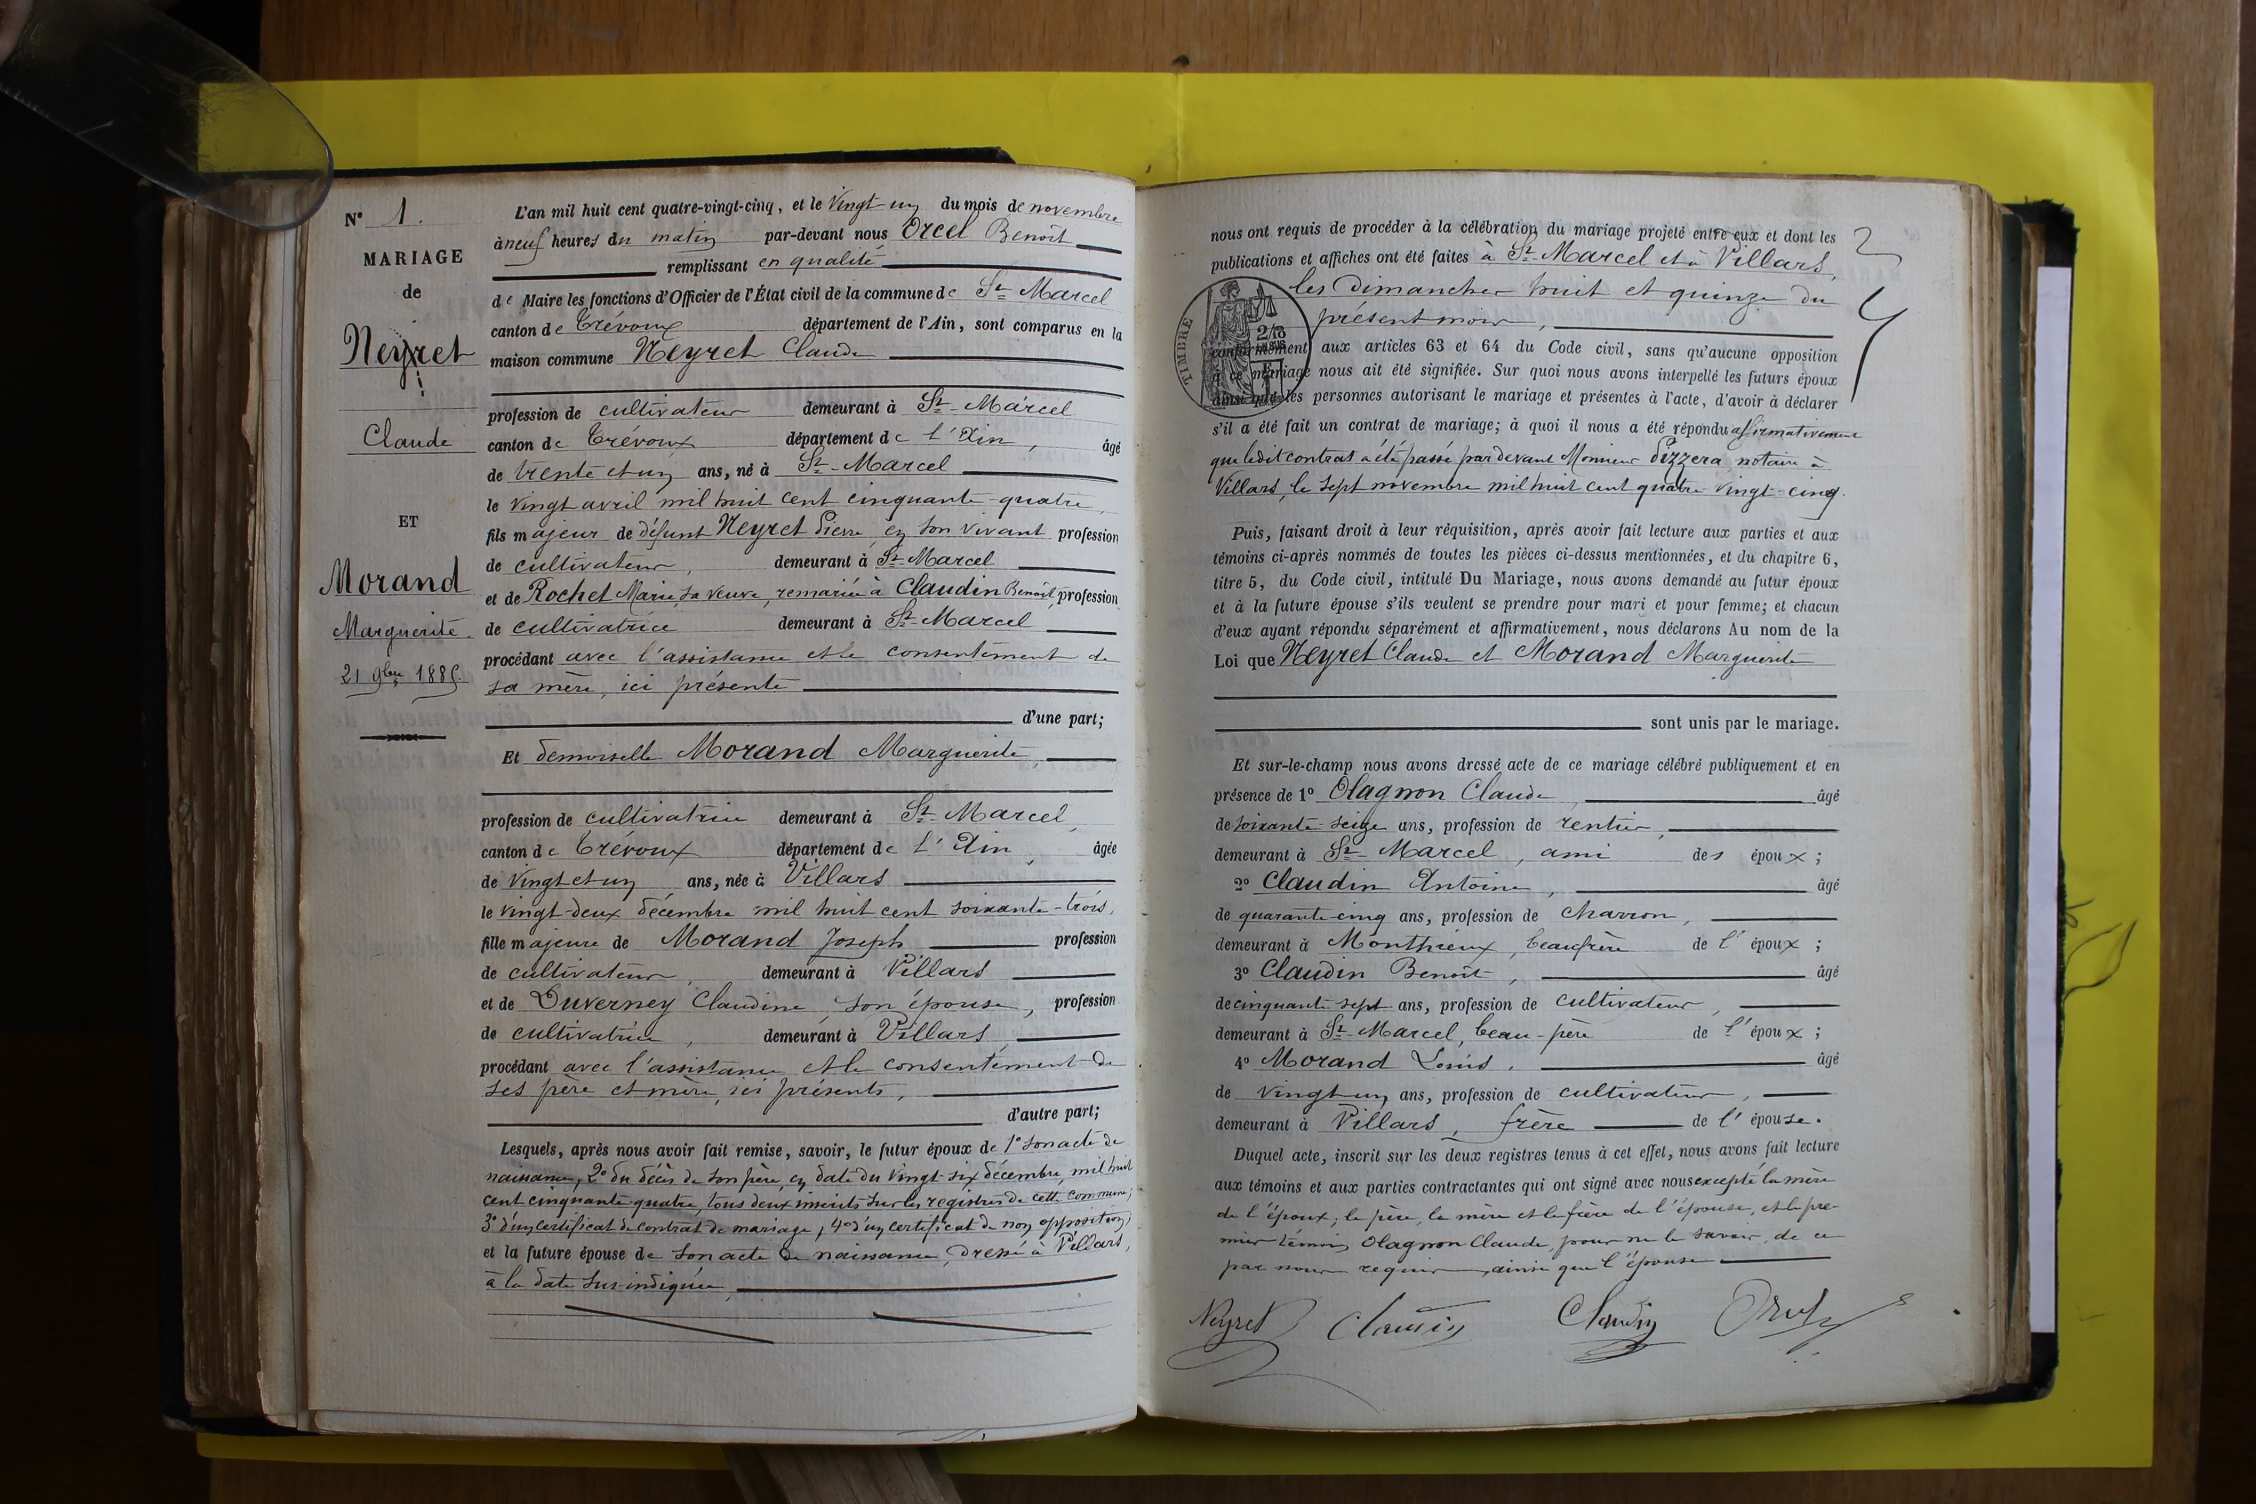 N° 1.
MARIAGE
de
Neyret
Claude
ET
Morand
Marguerite
21 9bre 1885.
L'an mil huit cent quatre-vingt-cinq, et le vingt un du mois de novembre
à neuf heures du matin par-devant nous Orcel Benoît
remplissant en qualité
de Maire les fonctions d'Officier de l'État civil de la commune de St Marcel
canton de Trévoux département de l'Ain, sont comparus en la
maison commune Neyret Claude
profession de cultivateur demeurant à St Marcel
canton de Trévoux département de l'Ain, âgé
de trente et un ans, né à St Marcel
le vingt avril mil huit cent cinquante-quatre,
fils majeur de défunt Neyret Pierre en son vivant profession
de cultivateur, demeurant à St Marcel
et de Rochet Marie, sa veuve, remariée à Claudin Benoît, profession
de cultivatrice demeurant à St Marcel
procédant avec l'assistance et le consentement de
sa mère, ici présente
d'une part;
Et demoiselle Morand Marguerite,
profession de cultivatrice demeurant à St Marcel,
canton de Trévoux département de l'Ain, âgée
de vingt et un ans, née à Villars
le vingt-deux décembre mil huit cent soixante-trois,
fille majeure de Morand Joseph profession
de cultivateur, demeurant à Villars
et de Duverney Claudine, son épouse, profession
de cultivatrice, demeurant à Villars,
procédant avec l'assistance et le consentement de
ses père et mère, ici présents,
d'autre part;
Lesquels, après nous avoir fait remise, savoir, le futur époux de 1° son acte de
naissance, 2° du décès de son père, en date du vingt-six décembre, mil huit
cent cinquante quatre, tous deux inscrits sur les registres de cette commune;
3° d'un certificat de contrat de mariage, 4° d'un certificat de non opposition;
et la future épouse de son acte de naissance, dressé à Villars,
à la date sus-indiquée,
2
nous ont requis de procéder à la célébration du mariage projeté entre eux et dont les
publications et affiches ont été faites à St Marcel et à Villars,
les Dimanches huit et quinze du
présent mois,
TIMBRE
conformément aux articles 63 et 64 du Code civil, sans qu'aucune opposition
à ce mariage nous ait été signifiée. Sur quoi nous avons interpellé les futurs époux
ainsi que les personnes autorisant le mariage et présentes à l'acte, d'avoir à déclarer
s'il a été fait un contrat de mariage; à quoi il nous a été répondu affirmativement
que ledit contrat a été passé par devant Monsieur Pizzera, notaire à
Villars, le sept novembre mil huit cent quatre vingt-cinq.
Puis, faisant droit à leur réquisition, après avoir fait lecture aux parties et aux
témoins ci-après nommés de toutes les pièces ci-dessus mentionnées, et du chapitre 6,
titre 5, du Code civil, intitulé Du Mariage, nous avons demandé au futur époux
et à la future épouse s'ils veulent se prendre pour mari et pour femme; et chacun
d'eux ayant répondu séparément et affirmativement, nous déclarons Au nom de la
Loi que Neyret Claude et Morand Marguerite
sont unis par le mariage.
Et sur-le-champ nous avons dressé acte de ce mariage célébré publiquement et en
présence de 1° Olagnon Claude, âgé
de soixante-seize ans, profession de rentier,
demeurant à St Marcel, ami des époux;
2° Claudin Antoine, âgé
de quarante-cinq ans, profession de charron,
demeurant à Monthieux, beaufrère de l'époux;
3° Claudin Benoît, âgé
de cinquante sept ans, profession de cultivateur,
demeurant à St Marcel, beau-père de l'époux;
4° Morand Louis, âgé
de vingt un ans, profession de cultivateur,
demeurant à Villars, frère de l'épouse.
Duquel acte, inscrit sur les deux registres tenus à cet effet, nous avons fait lecture
aux témoins et aux parties contractantes qui ont signé avec nous excepté la mère
de l'époux; le père, la mère et le frère de l'épouse, et le pre-
mier témoin Olagnon Claude, pour ne le savoir, de ce
par nous requis, ainsi que l'épouse
Neyret Claudin Claudin Orcel